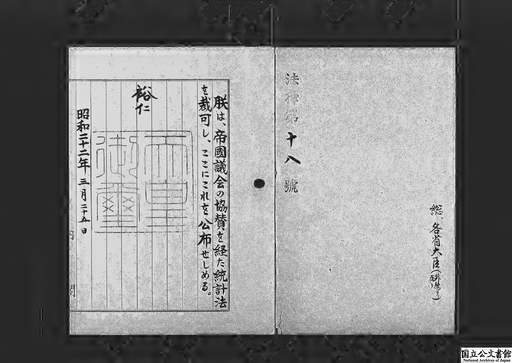 法律第十八號
総、各省大臣
朕は、帝國議会の協賛を経た統計法
を裁可し、ここにこれを公布せしめる。
裕仁
天皇
御璽
昭和二十二年三月二十五日
内閣
国立公文書館
National Archives of Japan